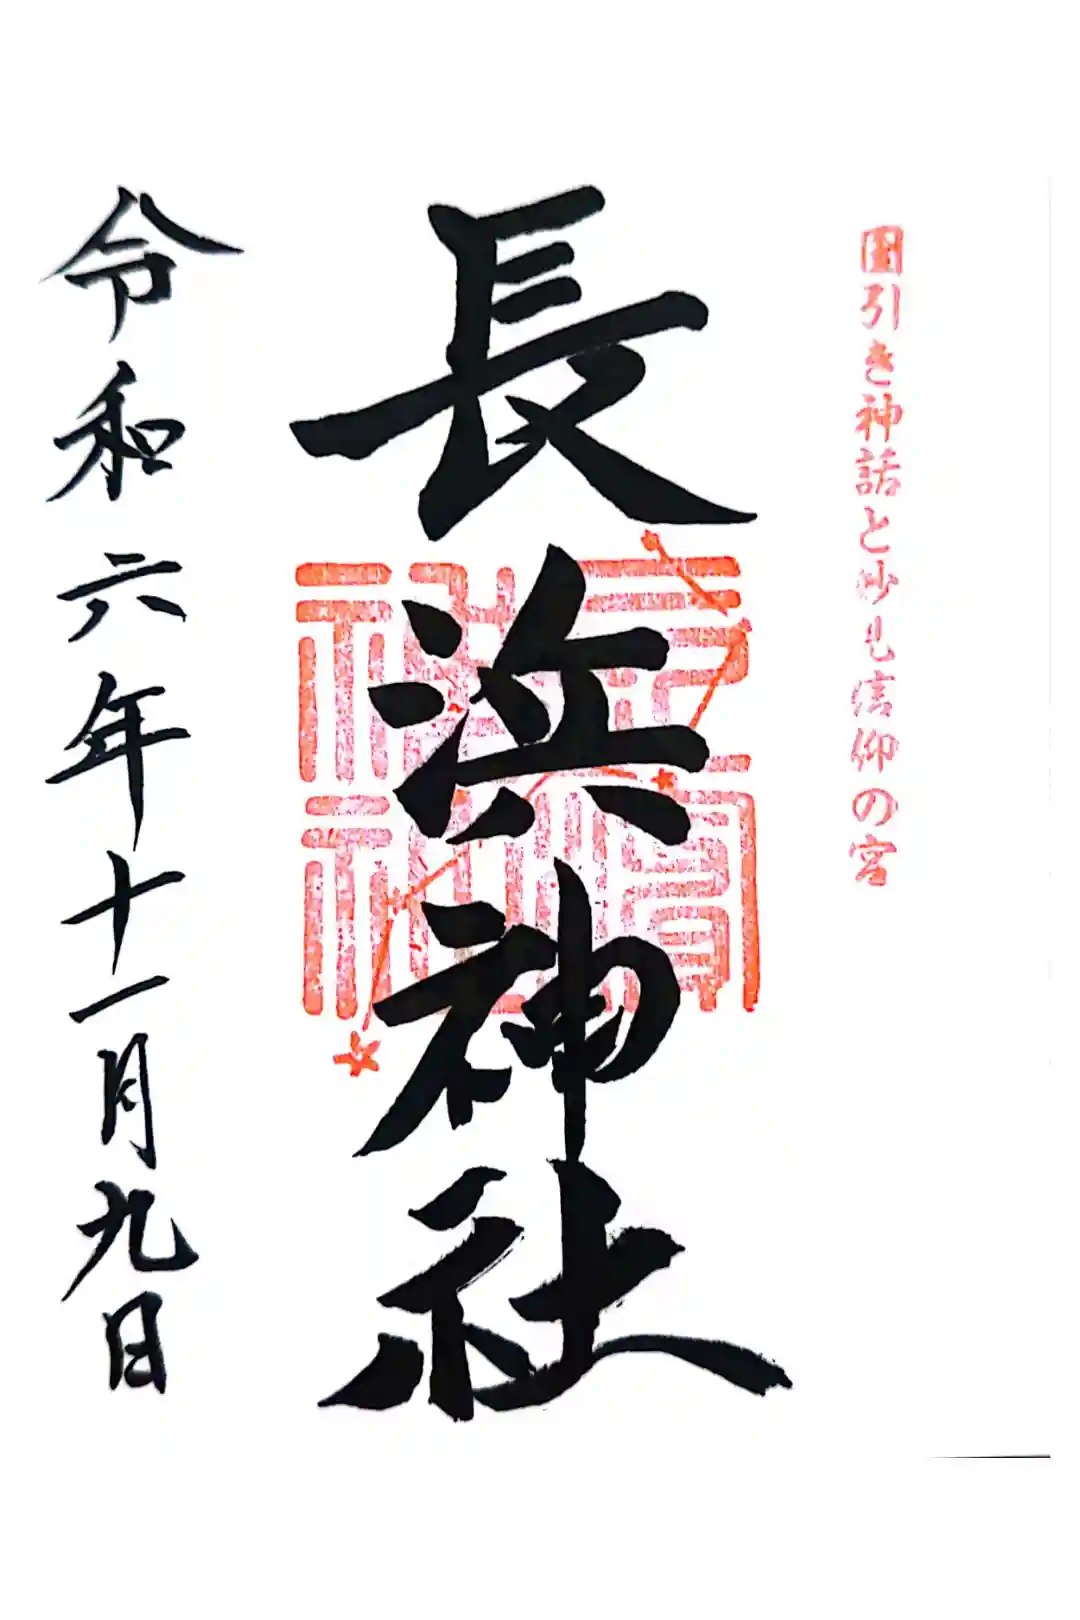 國引き神話と妙見信仰の宮
長浜神社
令和六年十一月九日